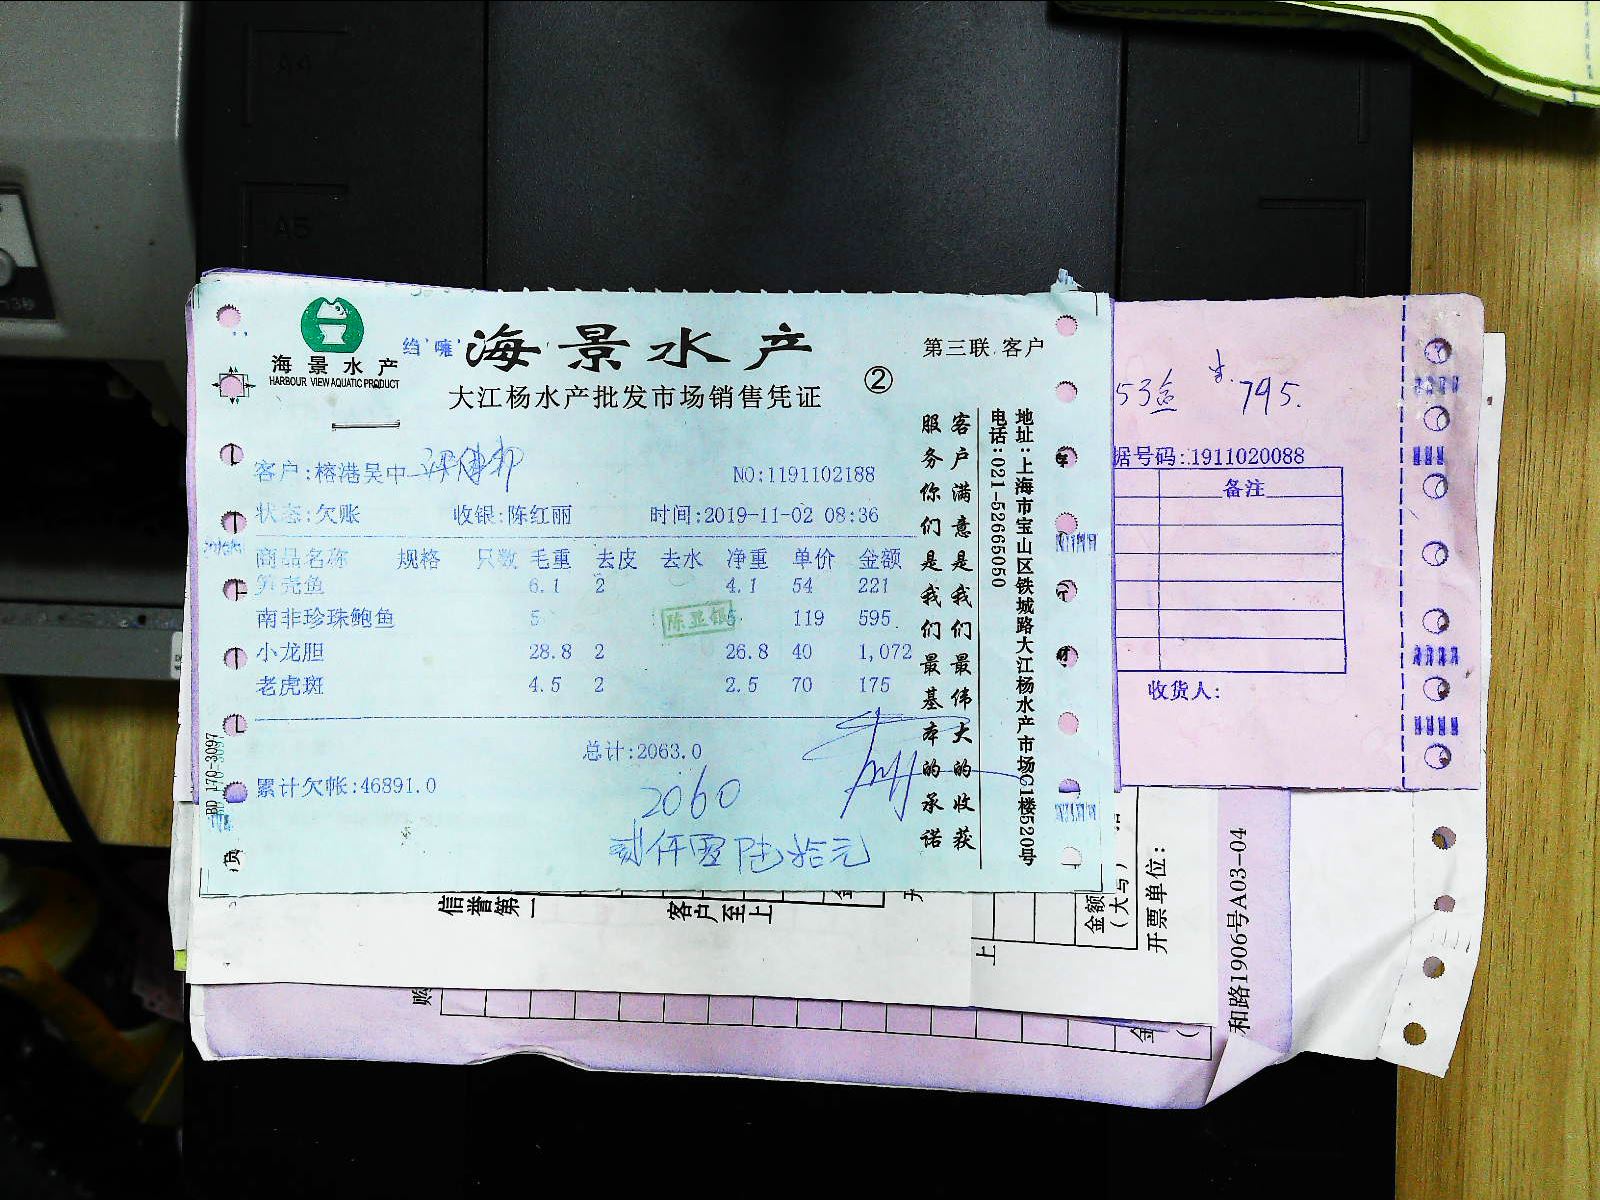 海景水产
HARBOUR VIEW AQUATIC PRODUCT
海景水产
第三联 客户
大江杨水产批发市场销售凭证
②
客户:榕港吴中
NO:1191102188
状态:欠账 收银:陈红丽 时间:2019-11-02 08:36
商品名称 规格 只数 毛重 去皮 去水 净重 单价 金额
笋壳鱼 6.1 2 4.1 54 221
南非珍珠鲍鱼 5 5 119 595
小龙胆 28.8 2 26.8 40 1,072
老虎斑 4.5 2 2.5 70 175
总计:2063.0
累计欠帐:46891.0
2060
贰仟零陆拾元
客户满意是我们最伟大的收获
服务你们是我们最基本的承诺
地址:上海市宝山区铁城路大江杨水产市场C1楼520号
电话:021-52665050
BD 170-3097
795.
据号码:1911020088
备注
收货人:
信誉第一
客户至上
上
金额
(大写)
开票单位:
和路1906号A03-04
购
金
A4
A5